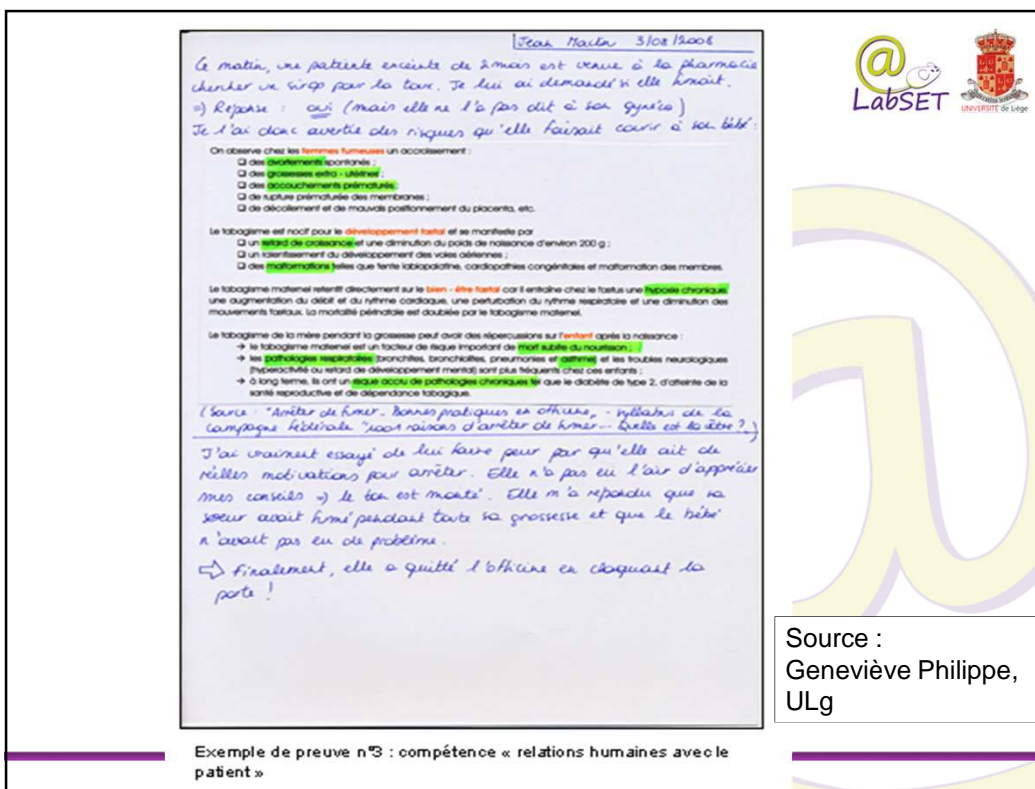 Jean Martin 3/08/2008
Ce matin, une patiente enceinte de 2 mois est venue à la pharmacie
chercher un sirop pour la toux. Je lui ai demandé si elle fumait.
=) Réponse : oui (mais elle ne l'a pas dit à son gynéco)
Je l'ai donc avertie des risques qu'elle faisait courir à son bébé :
On observe chez les femmes fumeuses un accroissement :
❑ des avortements spontanés ;
❑ des grossesses extra - utérines ;
❑ des accouchements prématurés ;
❑ de rupture prématurée des membranes ;
❑ de décollement et de mauvais positionnement du placenta, etc.
Le tabagisme est nocif pour le développement fœtal et se manifeste par
❑ un retard de croissance et une diminution du poids de naissance d'environ 200 g ;
❑ un ralentissement du développement des voies aériennes ;
❑ des malformations telles que fente labiopalatine, cardiopathies congénitales et malformation des membres.
Le tabagisme maternel retentit directement sur le bien - être fœtal car il entraîne chez le fœtus une hypoxie chronique,
une augmentation du débit et du rythme cardiaque, une perturbation du rythme respiratoire et une diminution des
mouvements fœtaux. La mortalité périnatale est doublée par le tabagisme maternel.
Le tabagisme de la mère pendant la grossesse peut avoir des répercussions sur l'enfant après la naissance :
→ le tabagisme maternel est un facteur de risque important de mort subite du nourrisson ;
→ les pathologies respiratoires (bronchites, bronchiolites, pneumonies et asthme) et les troubles neurologiques
(hyperactivité ou retard de développement mental) sont plus fréquents chez ces enfants ;
→ à long terme, ils ont un risque accru de pathologies chroniques tel que le diabète de type 2, d'atteinte de la
santé reproductive et de dépendance tabagique.
(Source : "Arrêter de fumer. Bonnes pratiques en officine, - syllabus de la
campagne fédérale "1001 raisons d'arrêter de fumer... Quelle est la vôtre ?)
J'ai vraiment essayé de lui faire peur par qu'elle ait de
réelles motivations pour arrêter. Elle n'a pas eu l'air d'apprécier
mes conseils =) le ton est monté. Elle m'a répondu que sa
soeur avait fumé pendant toute sa grossesse et que le bébé
n'avait pas eu de problème.
⇨ Finalement, elle a quitté l'officine en claquant la
porte !
LabSET
UNIVERSITÉ de Liège
Source :
Geneviève Philippe,
ULg
Exemple de preuve n°3 : compétence « relations humaines avec le
patient »